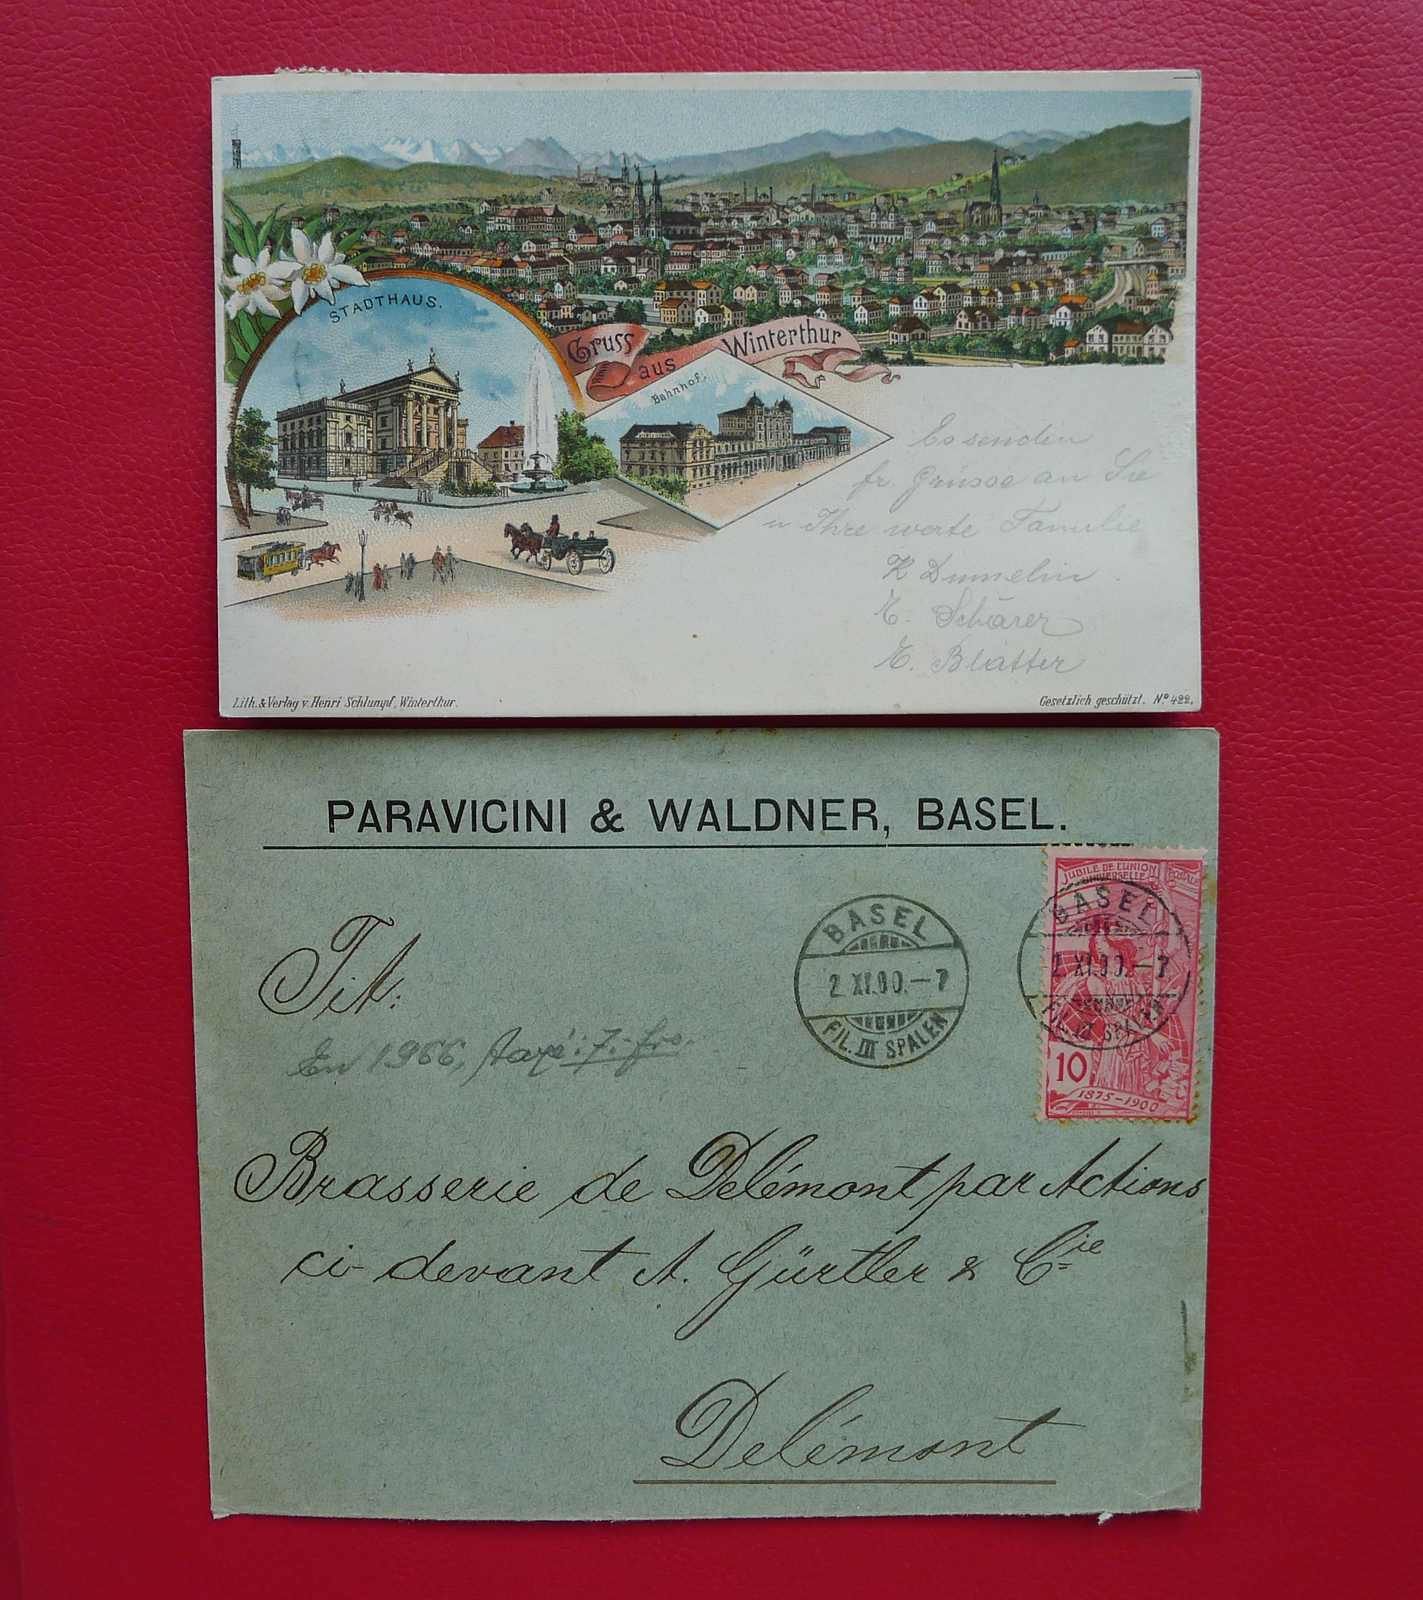 STADTHAUS.
Gruss aus Winterthur
Bahnhof.
Es senden
fr. Grüsse an Sie
u Ihre werte Familie
E. Schärer
E. Blatter
Lith. & Verlag v. Henri Schlumpf, Winterthur.
Gesetzlich geschützt. Nº 422.
PARAVICINI & WALDNER, BASEL.
JUBILÉ DE L'UNION
POSTALE
UNIVERSELLE
BASEL
2.XI.00.-7
FIL. III SPALEN
BASEL
2.XI.00.-7
FIL. III SPALEN
10
1875-1900
Tit.
En 1966, taxé: 7. frs.
Brasserie de Delémont par Actions
ci-devant A. Gürtler & Cie
Delémont